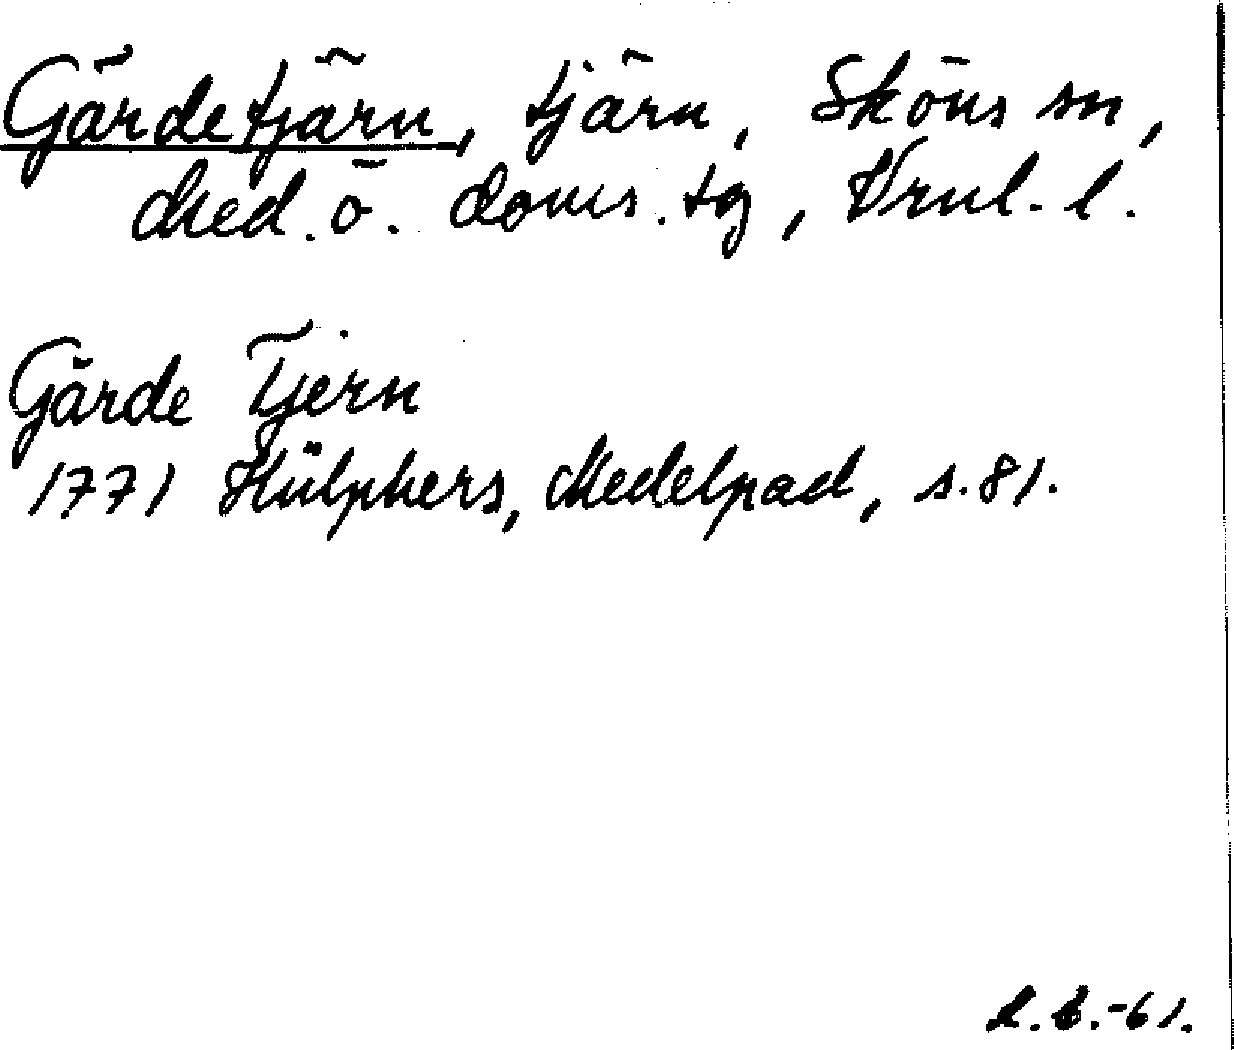 Gärdetjärn, tjärn, Sköns sn,
Med. ö. doms. tg, Vrnl. l.
Gärde Tjern
1771 Hülphers, Medelpad, s. 81.